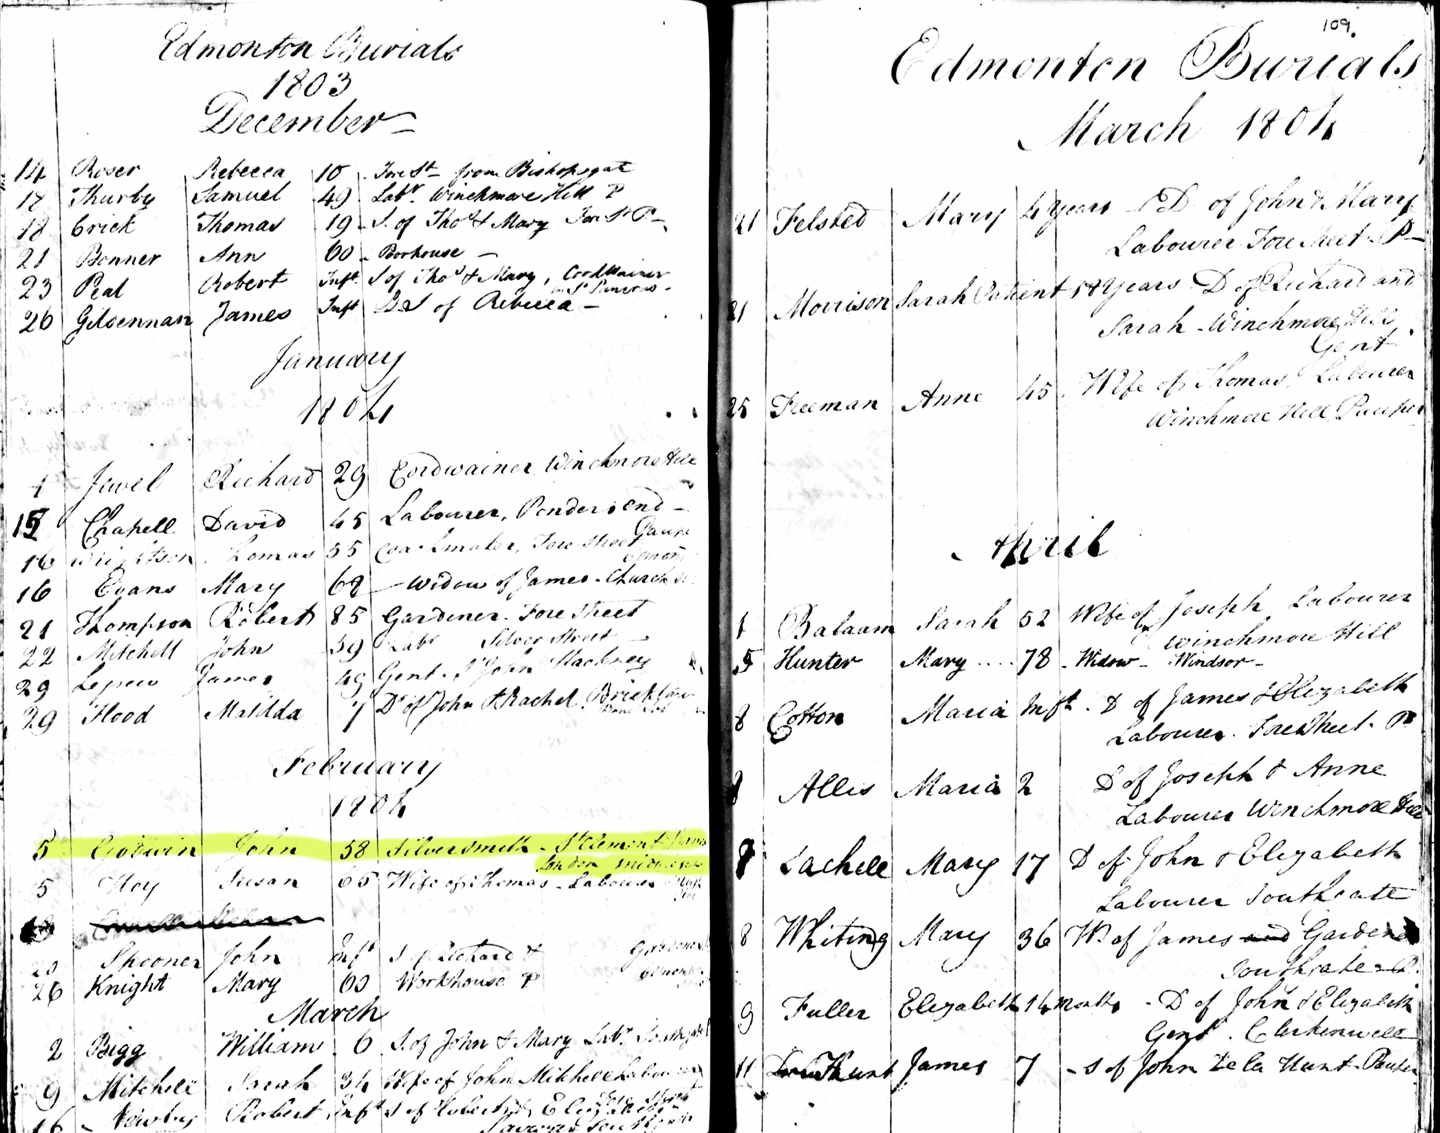 Edmonton Burials
1803
December
14 Roser Rebecca 10 Fore St from Bishopsgat
18 Thurby Samuel 49 Labr. Winchmore Hill P
18 Crick Thomas 19 S. of Thos & Mary Fore St P
21 Bonner Ann 60 Poorhouse
23 Peal Robert Inft S of Thos & Mary, Cordwainer
St Pancras
26 James Inft B.S of Rebecca
January
1804
1 Jewel Richard 29 Cordwainer Winchmore Hill
15 Chapell David 45 Labourer, Ponders end
16 Thomas 55 Coachmaker, Fore Street
16 Evans Mary 68 Widow of James - Church St
21 Thompson Robert 85 Gardener. Fore Street
22 Mitchell John 59 Labr Silver Street
29 James 49 Gent. St John Hackney
29 Hood Matilda 7 Dr of John & Rachel
February
1804
5 Godwin John 58 Silversmith - St Clement Danes
London Middlesex
5 Hoy Susan 65 Wife of Thomas - Labourer
20 Spooner John Inft S. of Richard &
26 Knight Mary 60 Workhouse P
March
2 Bigg William 6 S. of John & Mary Labr Southgate
9 Mitchell Sarah 34 Wife of John Mitchell Labourer
16 Robert Inft S of Robert & Elizabeth
109.
Edmonton Burials
March 1804
21 Felsted Mary 4 years - D of John & Mary
Labourer Fore Street - P
21 Morrison Sarah Patient 18 years D of Richard and
Sarah - Winchmore Hill
Gent
25 Freeman Anne 45 Wife of Thomas, Labourer
Winchmore Hill
April
1 Balaam Sarah 52 Wife of Joseph Labourer
Winchmore Hill
5 Hunter Mary .... 78 - Widow - Windsor -
8 Cotton Maria Inft. D of James & Elizabeth
Labourer. Fore Street. P
8 Allis Maria 2 D of Joseph & Anne
Labourer Winchmore Hill
Mary 17 D of John & Elizabeth
Labourer Southgate
8 Whiting Mary 36 W. of James and Gardener
Southgate - P.
9 Fuller Elizabeth 14 Months - D of John & Elizabeth
Gent. Clerkenwell
11 Hunt James 7 - S of John De la Hunt